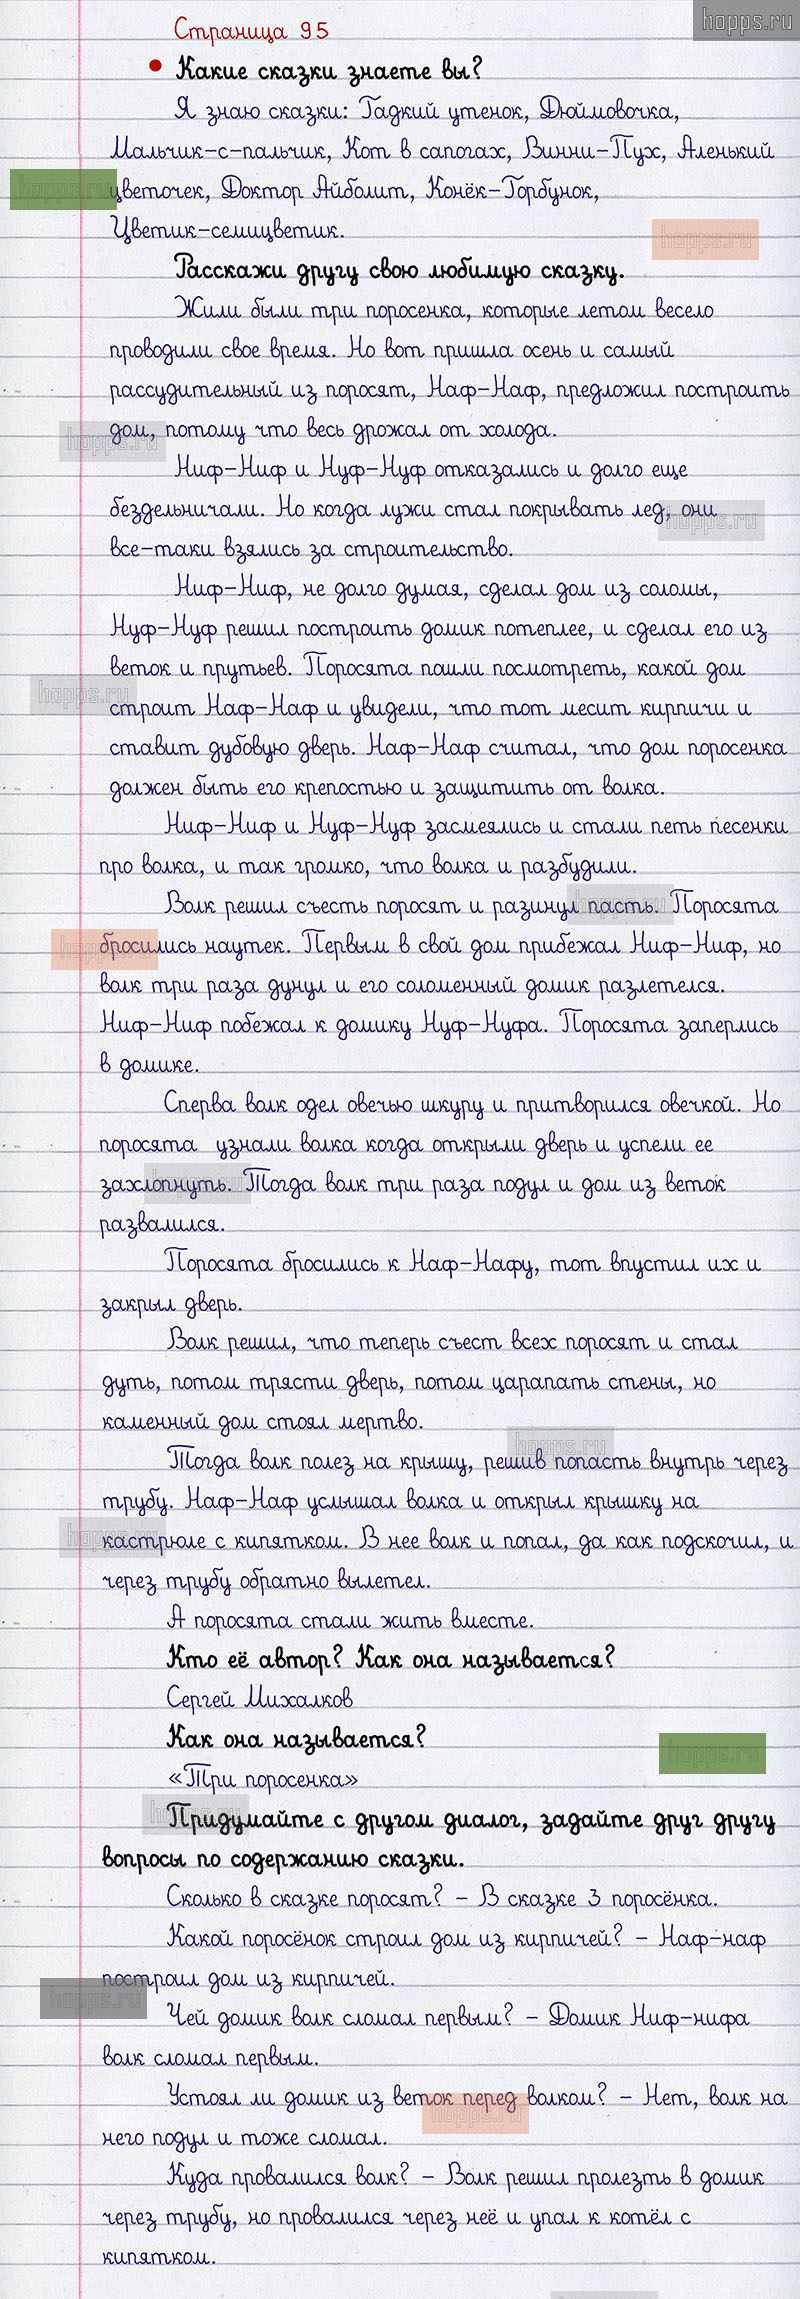 hopps.ru
Страница 95
• Какие сказки знаете вы?
Я знаю сказки: Гадкий утенок, Дюймовочка,
Мальчик-с-пальчик, Кот в сапогах, Винни-Пух, Аленький
цветочек, Доктор Айболит, Конёк-Горбунок,
Цветик-семицветик.
Расскажи другу свою любимую сказку.
Жили были три поросенка, которые летом весело
проводили свое время. Но вот пришла осень и самый
рассудительный из поросят, Наф-Наф, предложил построить
дом, потому что весь дрожал от холода.
Ниф-Ниф и Нуф-Нуф отказались и долго еще
бездельничали. Но когда лужи стал покрывать лед, они
все-таки взялись за строительство.
Ниф-Ниф, не долго думая, сделал дом из соломы,
Нуф-Нуф решил построить домик потеплее, и сделал его из
веток и прутьев. Поросята пошли посмотреть, какой дом
строит Наф-Наф и увидели, что тот месит кирпичи и
ставит дубовую дверь. Наф-Наф считал, что дом поросенка
должен быть его крепостью и защитить от волка.
Ниф-Ниф и Нуф-Нуф засмеялись и стали петь песенки
про волка, и так громко, что волка и разбудили.
Волк решил съесть поросят и разинул пасть. Поросята
бросились наутек. Первым в свой дом прибежал Ниф-Ниф, но
волк три раза дунул и его соломенный домик разлетелся.
Ниф-Ниф побежал к домику Нуф-Нуфа. Поросята заперлись
в домике.
Сперва волк одел овечью шкуру и притворился овечкой. Но
поросята узнали волка когда открыли дверь и успели ее
захлопнуть. Тогда волк три раза подул и дом из веток
развалился.
Поросята бросились к Наф-Нафу, тот впустил их и
закрыл дверь.
Волк решил, что теперь съест всех поросят и стал
дуть, потом трясти дверь, потом царапать стены, но
каменный дом стоял мертво.
Тогда волк полез на крышу, решив попасть внутрь через
трубу. Наф-Наф услышал волка и открыл крышку на
кастрюле с кипятком. В нее волк и попал, да как подскочил, и
через трубу обратно вылетел.
А поросята стали жить вместе.
Кто её автор? Как она называется?
Сергей Михалков
Как она называется?
«Три поросенка»
Придумайте с другом диалог, задайте друг другу
вопросы по содержанию сказки.
Сколько в сказке поросят? - В сказке 3 поросёнка.
Какой поросёнок строил дом из кирпичей? - Наф-наф
построил дом из кирпичей.
Чей домик волк сломал первым? - Домик Ниф-нифа
волк сломал первым.
Устоял ли домик из веток перед волком? - Нет, волк на
него подул и тоже сломал.
Куда провалился волк? - Волк решил пролезть в домик
через трубу, но провалился через неё и упал к котёл с
кипятком.